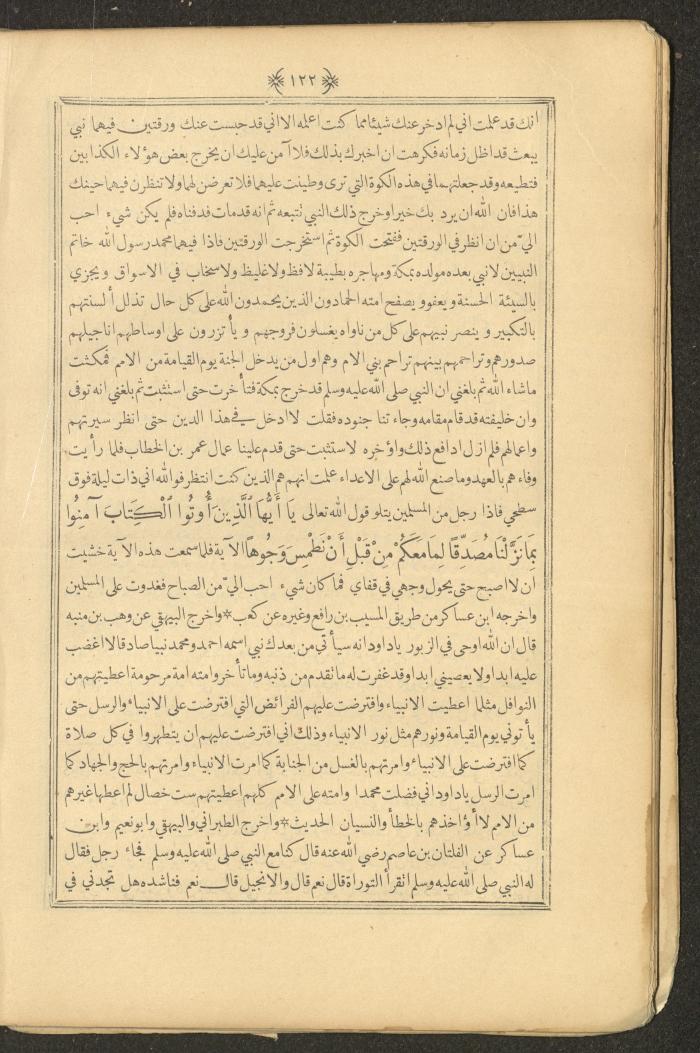 ١٢٢
انك قد علمت اني لم ادخر عنك شيئا مما كنت اعلمه الا اني قد حبست عنك ورقتين فيهما نبي
يبعث قد اظل زمانه فكرهت ان اخبرك بذلك فلا آمن عليك ان يخرج بعض هؤلاء الكذابين
فتطيعه وقد جعلتهما في هذه الكوة التي ترى وطينت عليهما فلا تعرضن لهما ولا تنظرن فيهما حينك
هذا فان الله ان يرد بك خيرا وخرج ذلك النبي تتبعه ثم انه قد مات فدفناه فلم يكن شيء احب
اليّ من ان انظر في الورقتين ففتحت الكوة ثم استخرجت الورقتين فاذا فيهما محمد رسول الله خاتم
النبيين لا نبي بعده مولده بمكة ومهاجره بطيبة لا فظ ولا غليظ ولا سخاب في الاسواق ويجزي
بالسيئة الحسنة ويعفو ويصفح امته الحمادون الذين يحمدون الله على كل حال تذلل ألسنتهم
بالتكبير وينصر نبيهم على كل من ناواه يغسلون فروجهم ويأتزرون على اوساطهم اناجيلهم
صدورهم وتراحمهم بينهم تراحم بني الام وهم اول من يدخل الجنة يوم القيامة من الامم فمكثت
ما شاء الله ثم بلغني ان النبي صلى الله عليه وسلم قد خرج بمكة فتأخرت حتى استثبت ثم بلغني انه توفى
وان خليفته قد قام مقامه وجاءتنا جنوده فقلت لا ادخل في هذا الدين حتى انظر سيرتهم
واعمالهم فلم ازل ادافع ذلك واؤخره لاستثبت حتى قدم علينا عمال عمر بن الخطاب فلما رأيت
وفاءهم بالعهد وما صنع الله لهم على الاعداء علمت انهم هم الذين كنت انتظر فوالله اني ذات ليلة فوق
سطحي فاذا رجل من المسلمين يتلو قول الله تعالى يَا أَيُّهَا ٱلَّذِينَ أُوتُوا ٱلْكِتَابَ آمِنُوا
بِمَا نَزَّلْنَا مُصَدِّقًا لِمَا مَعَكُمْ مِنْ قَبْلِ أَنْ نَطْمِسَ وُجُوهًا الآية فلما سمعت هذه الآية خشيت
ان لا اصبح حتى يحول وجهي في قفاي فما كان شيء احب اليّ من الصباح فغدوت على المسلمين
واخرجه ابن عساكر من طريق المسيب بن رافع وغيره عن كعب * واخرج البيهقي عن وهب بن منبه
قال ان الله اوحى في الزبور يا داود انه سيأتي من بعدك نبي اسمه احمد ومحمد نبيا صادقا لا اغضب
عليه ابدا ولا يعصيني ابدا وقد غفرت له ما تقدم من ذنبه وما تأخر وامته امة مرحومة اعطيتهم من
النوافل مثلما اعطيت الانبياء وافترضت عليهم الفرائض التي افترضت على الانبياء والرسل حتى
يأتوني يوم القيامة ونورهم مثل نور الانبياء وذلك اني افترضت عليهم ان يتطهروا في كل صلاة
كما افترضت على الانبياء وامرتهم بالغسل من الجنابة كما امرت الانبياء وامرتهم بالحج والجهاد كما
امرت الرسل يا داود اني فضلت محمدا وامته على الامم كلهم اعطيتهم ست خصال لم اعطها غيرهم
من الامم لا أؤاخذهم بالخطأ والنسيان الحديث * واخرج الطبراني والبيهقي وابو نعيم وابن
عساكر عن الفلتان بن عاصم رضي الله عنه قال كنا مع النبي صلى الله عليه وسلم فجاء رجل فقال
له النبي صلى الله عليه وسلم اتقرأ التوراة قال نعم قال والانجيل قال نعم فناشده هل تجدني في